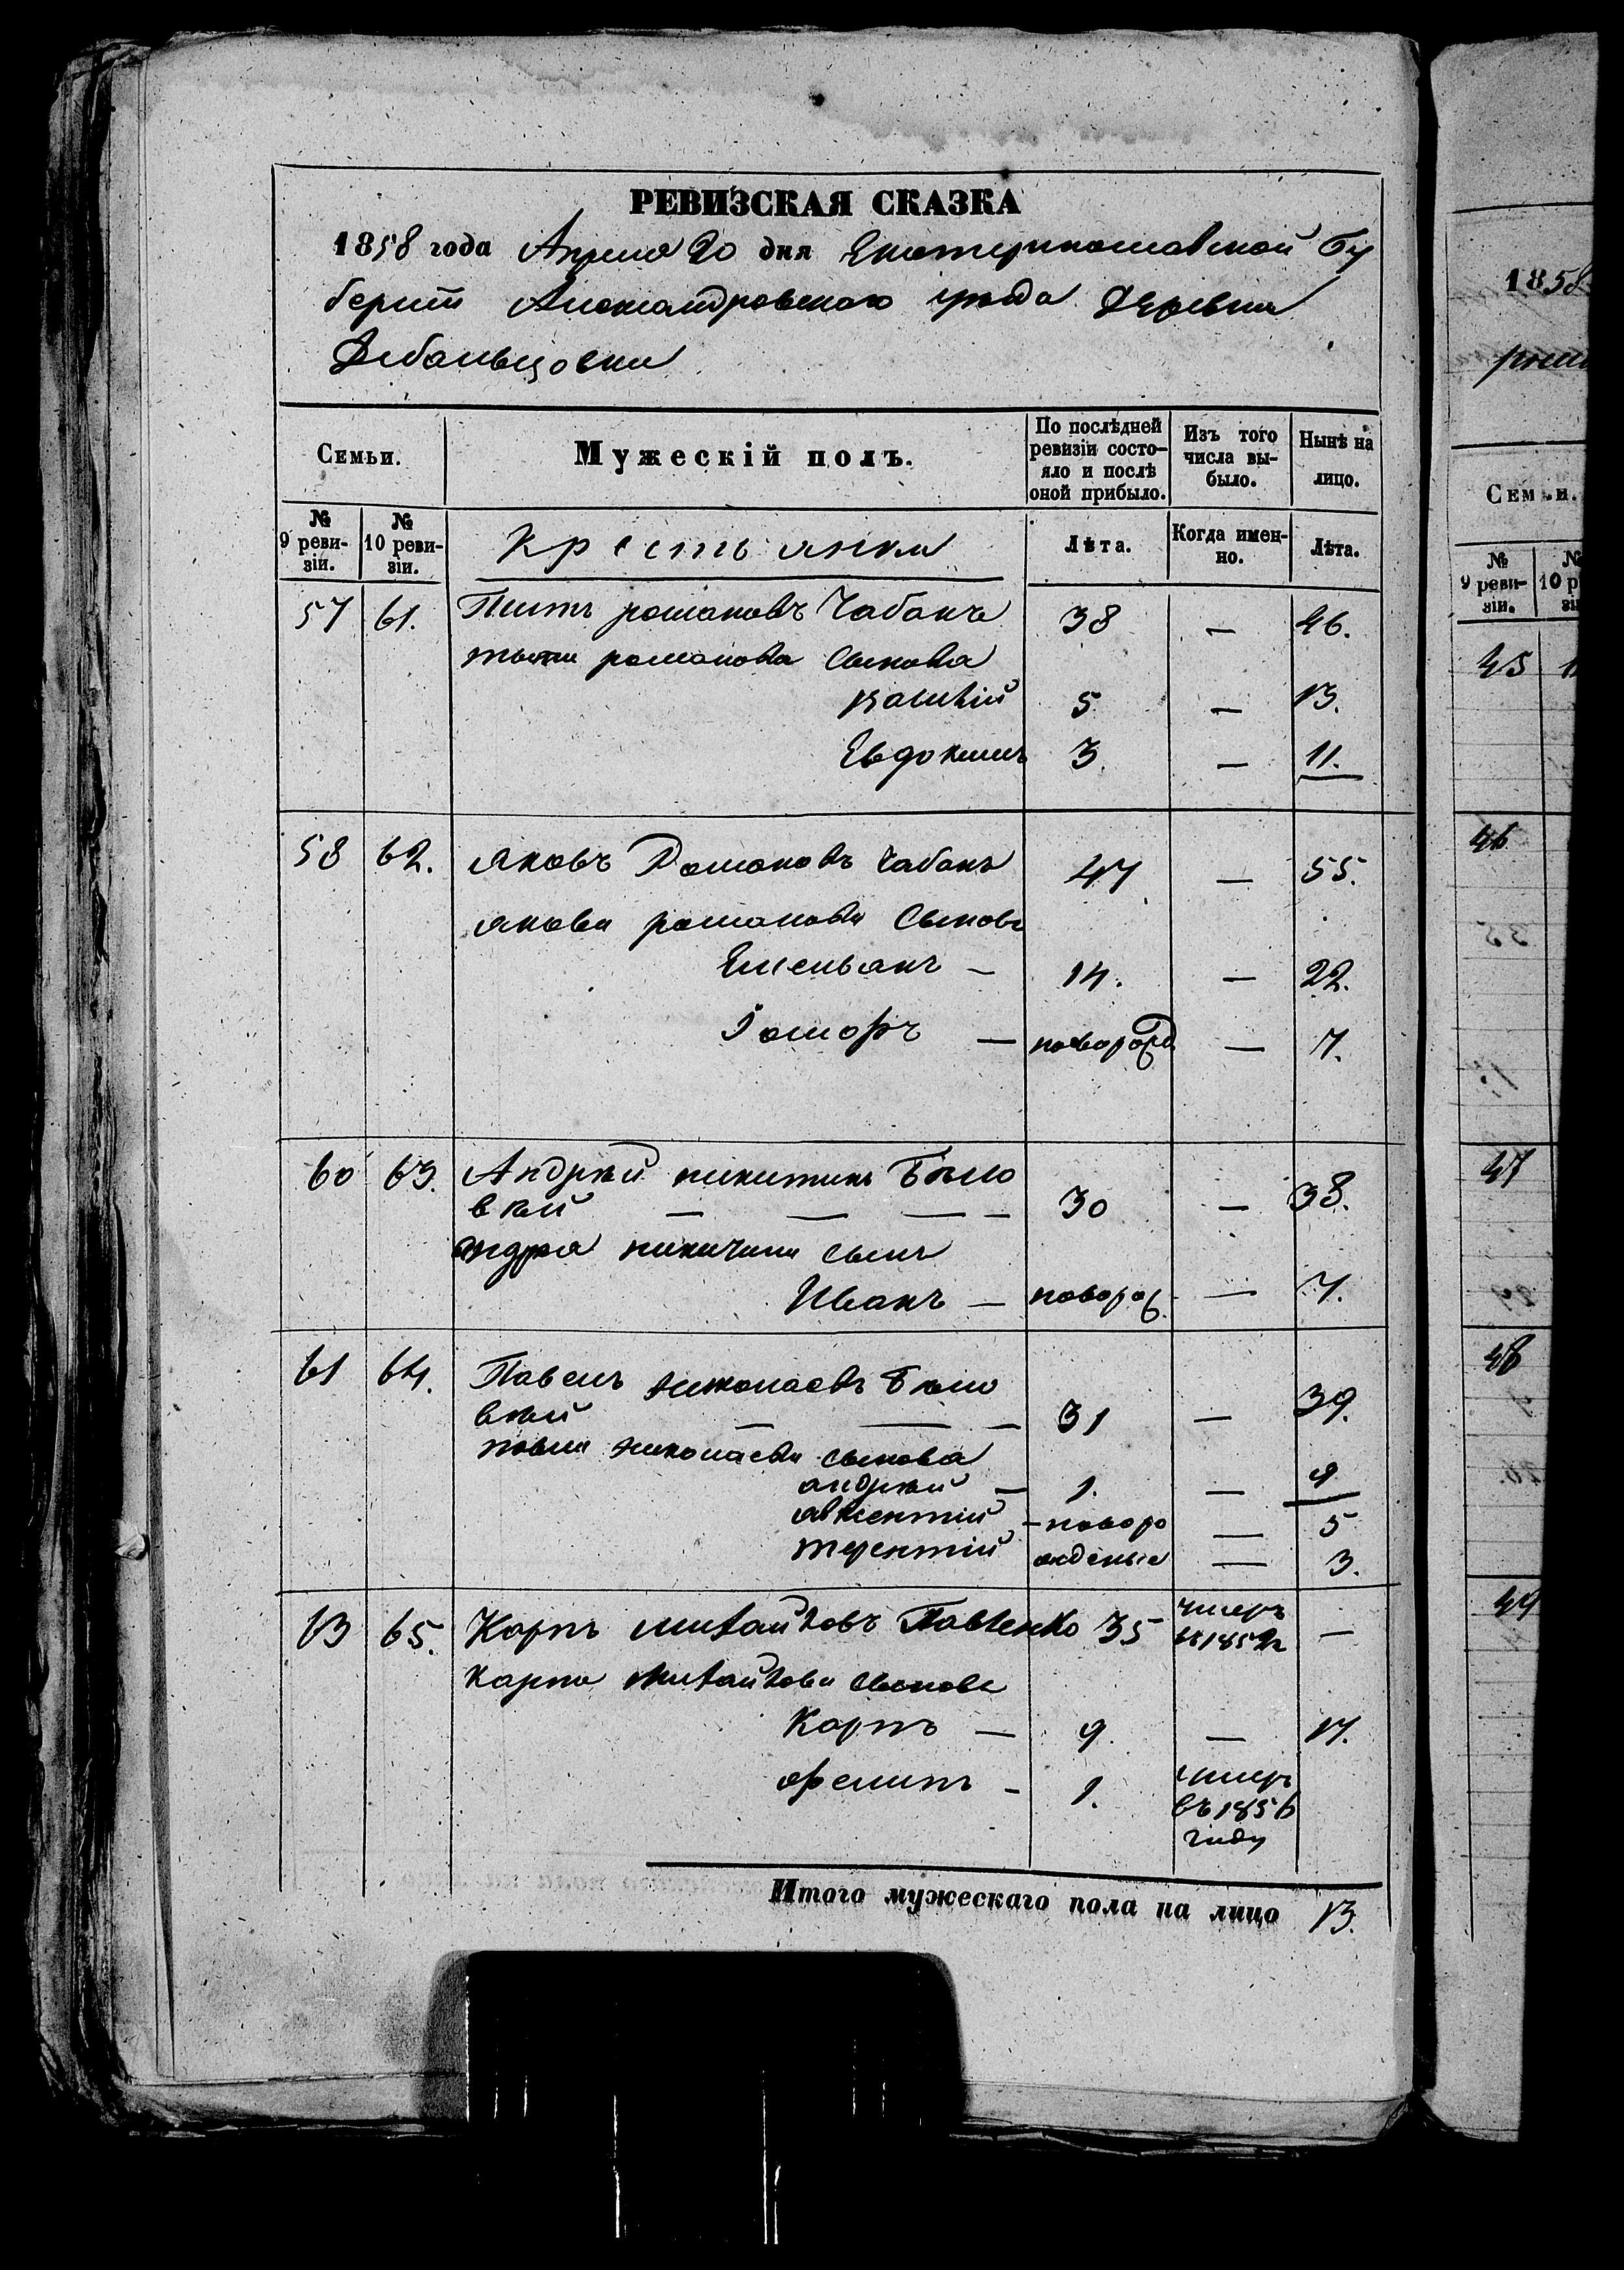 РЕВИЗСКАЯ СКАЗКА
1858 года Апреля 20 дня Екатеринославской Гу
берніи Александровскаго уезда Деревни
Дебальцовки
Семьи.
Мужескій полъ.
По послѣдней ревизіи состо-яло и послѣ оной прибыло.
Изъ того числа вы-было.
Нынѣ на лицо.
№ 9 реви-зіи.
№ 10 реви-зіи.
Крестьянки
Лѣта.
Когда имен-но.
Лѣта.
57 61. романовъ Чабанъ 38 — 46.
романова Сынова
5 — 13.
Евдокимъ 3. — 11.
58 62. Яковъ Романовъ Чабанъ 47 — 55.
якова романова Сынове
Емельянъ — 14. — 22.
— новорожд — 7.
60 63. Андрѣй никитинъ Бѣло
вкій — — — — 30 — 38.
андрея никитина сынъ
Иванъ — новорож. — 7.
61 64. Павелъ николаевъ Бѣло
вкій — — — 31 — 39.
павла николаева сынова
андрѣй — 1. — 9
авксентій — новоро — 5
терентій жденые — 3.
63 65. Карпъ михайловъ Павленко 35 умеръ въ 1852г —
карпа михайлова сынове
Карпъ — 9. — 17.
филипъ — 1. умеръ
въ 1856
году
Итого мужескаго пола на лицо 13.
1858
Семьи.
№ 9 реви-зіи.
45
46
47
48
49